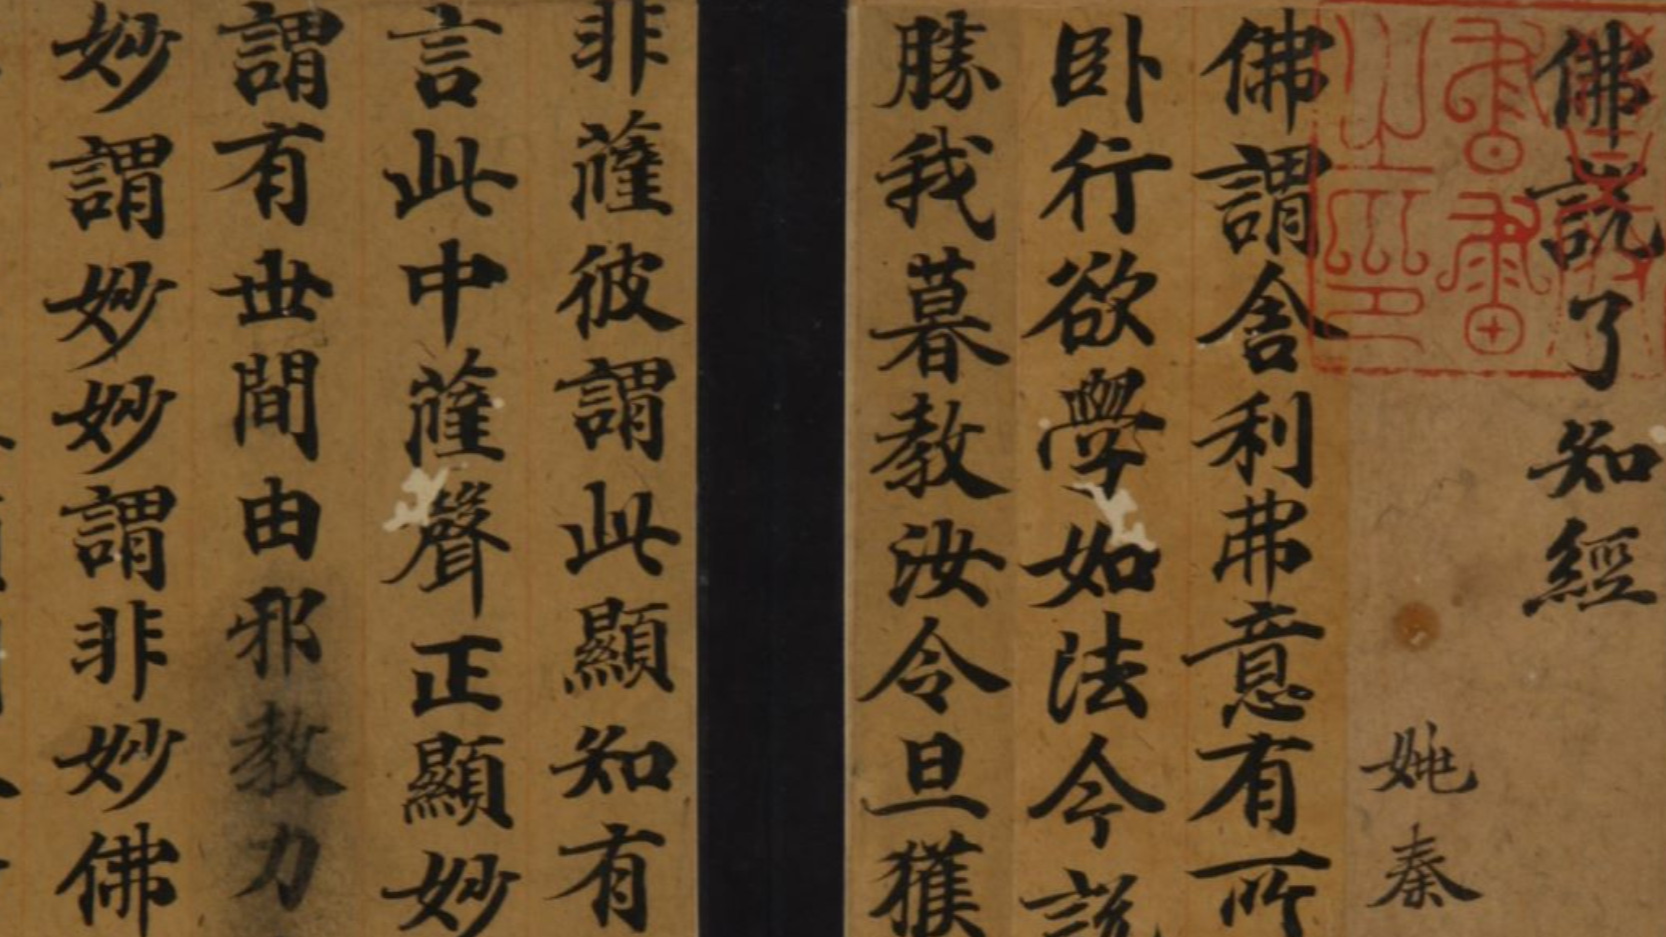 佛説了知經
姚秦
佛謂舎利弗意有所
卧行欲學如法今説
勝我暮教汝令旦獲
非薩彼謂此顯知有
言此中薩聲正顯妙
謂有世間由邪教力
妙謂妙妙謂非妙佛